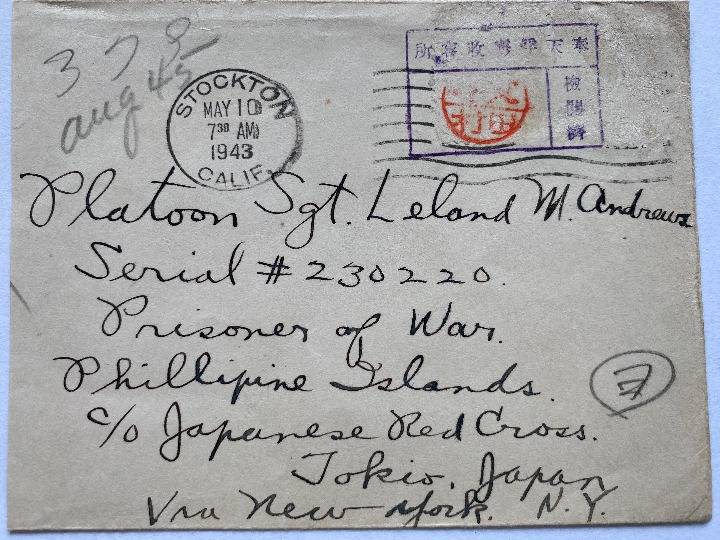 3 7 8
STOCKTON
MAY 10
7³⁰ AM
1943
CALIF.
奉天俘虜收容所
檢閲濟
Platoon Sgt. Leland M. Andrews
Serial # 230220.
Prisoner of War.
Phillipine Islands.
c/o Japanese Red Cross.
Tokio, Japan
Via New York. N.Y.